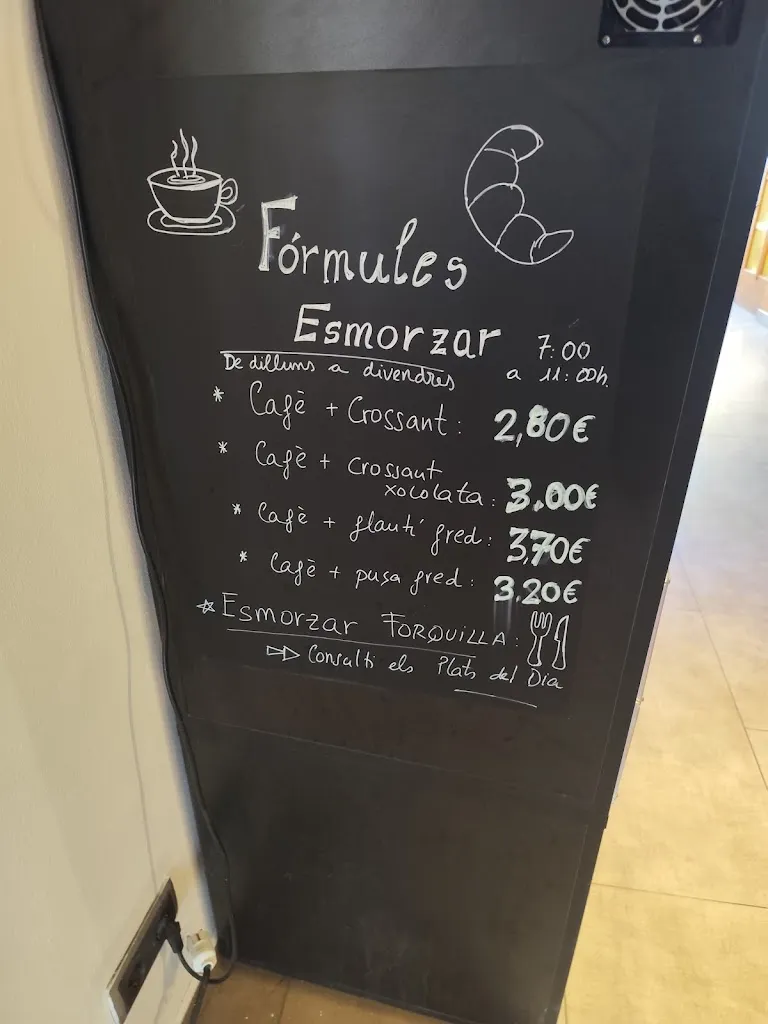 Fórmules
Esmorzar 7:00
De dilluns a divendres a 11:00h.
* Cafè + Crossant: 2,80€
* Cafè + Crossant
xocolata: 3.00€
* Cafè + flautí fred: 3,70€
* Cafè + puça fred: 3.20€
* Esmorzar FORQUILLA:
Consulti els Plats del Dia